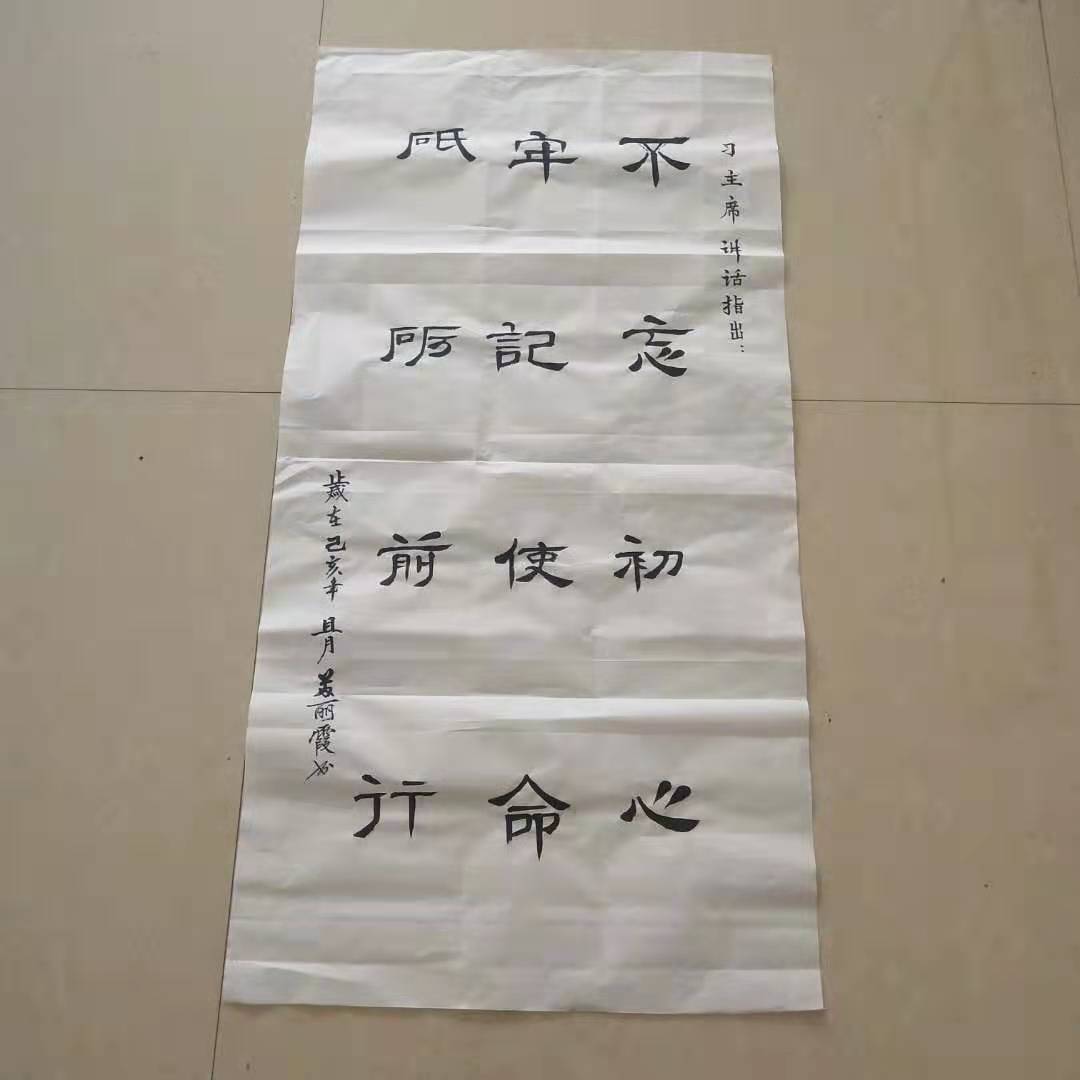 习主席讲话指出：
不忘初心
牢記使命
砥砺前行
歲在己亥年 且月 丽霞书